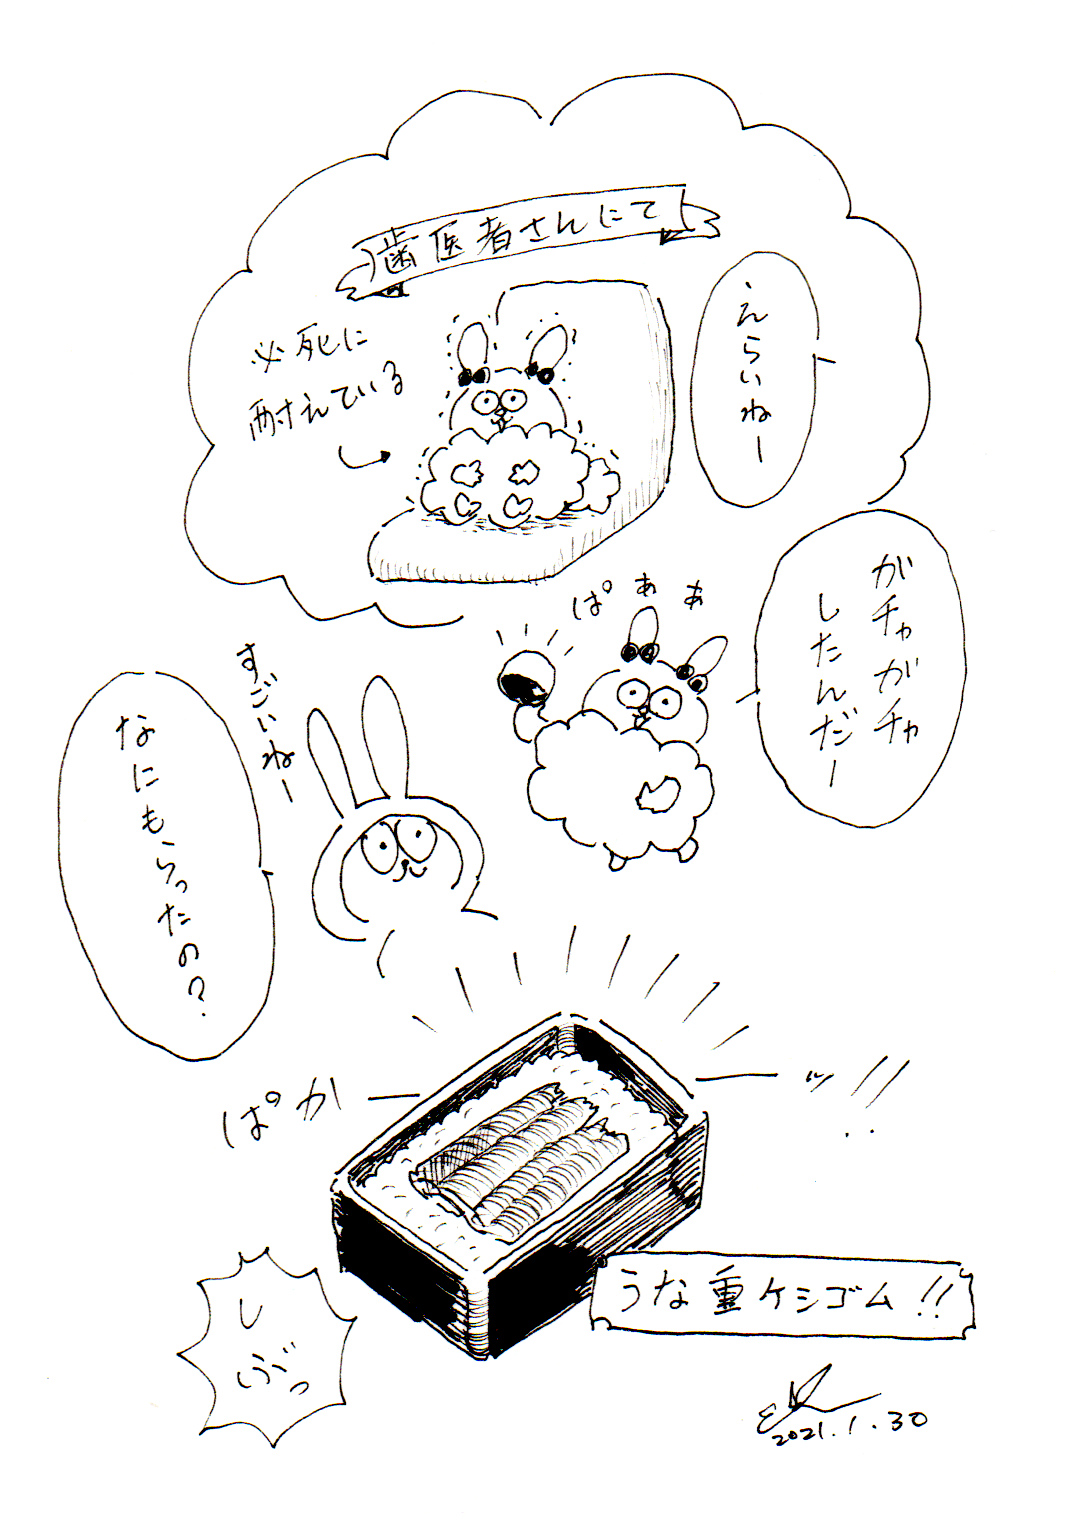 歯医者さんにて
えらいねー
必死に
耐えている
ガチャガチャ
したんだー
ぱぁぁ
すごいねー
なにもらったの?
ぱかーーッ!!
うな重ケシゴム!!
し
ぶっ
2021.1.30